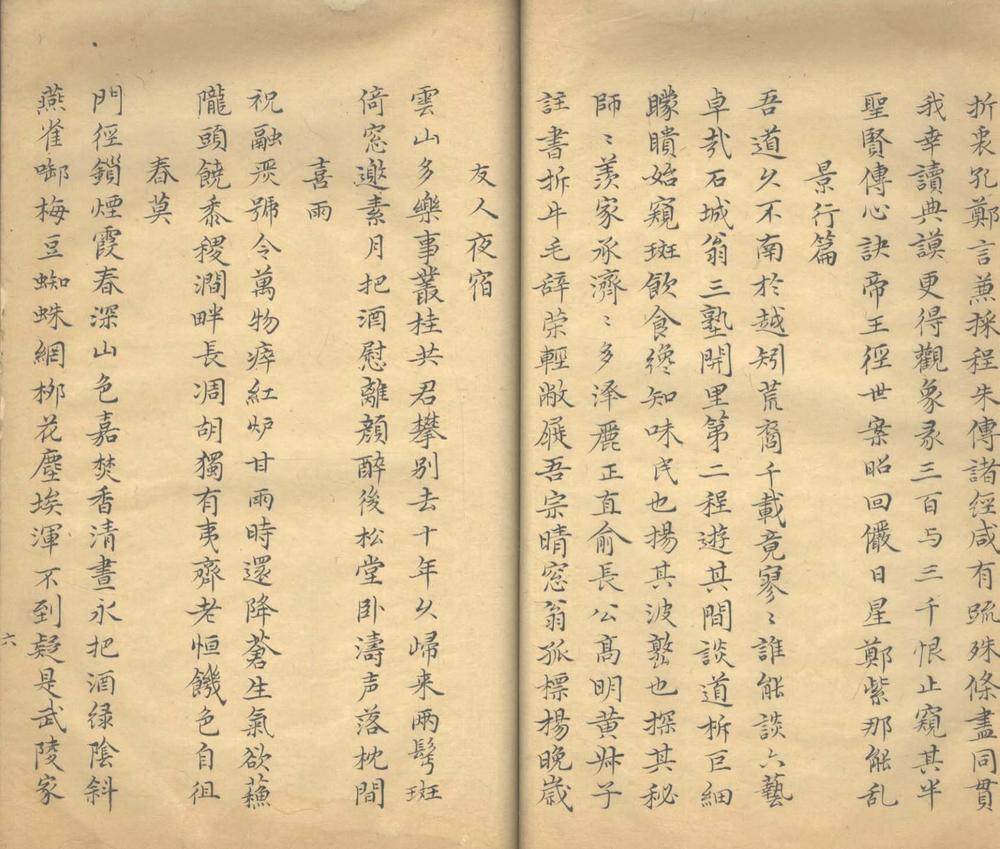 折衷孔鄭言兼採程朱傳諸經咸有疏殊條盡同貫
我幸讀典謨更得觀象彖三百与三千恨止窺其半
聖賢傳心訣帝王徑世案昭回儼日星鄭紫那能乱
景行篇
吾道久不南於越矧荒裔千載竟寥〻誰能談六藝
卓㢤石城翁三塾開里第二程遊其間談道柝巨細
矇瞶始窺斑飲食纔知味民也揚其波慗也探其秘
師〻羡家承濟〻多泽麗正直俞長公高明黄舜子
註書折牛毛辞荣輕敝屣吾宗晴窓翁孤標楊晚歲
友人夜宿
雲山多樂事叢桂共君攀別去十年久㱕来兩髩斑
倚窓邀素月把酒慰離顏醉後松堂卧濤声落枕間
喜雨
祝融烖號令萬物瘁紅炉甘雨時還降蒼生氣欲蘓
隴頭饒黍稷澗畔長凋胡獨有夷齊老恒饑色自徂
春莫
門徑鎻煙霞春深山色嘉焚香清晝永把酒緑陰斜
燕雀啣梅豆蜘蛛網栁花塵埃渾不到疑是武陵家
六